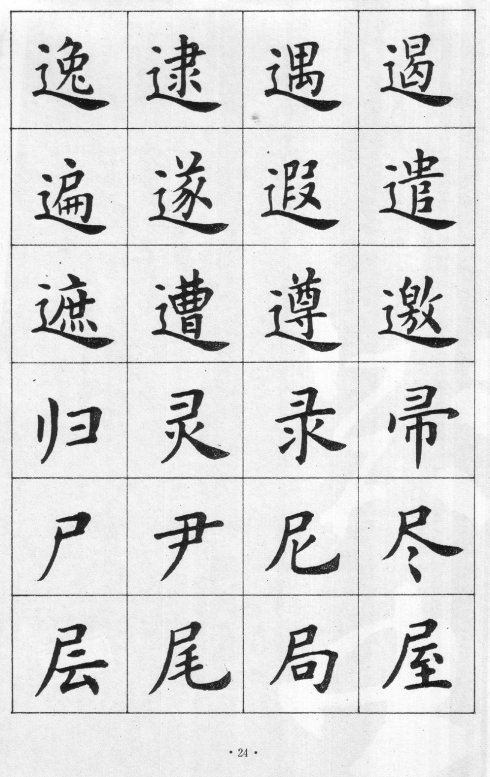 逸逮遇遏
遍遂遐遣
遮遭遵邀
归灵录帚
尸尹尼尽
层尾局屋
·24·